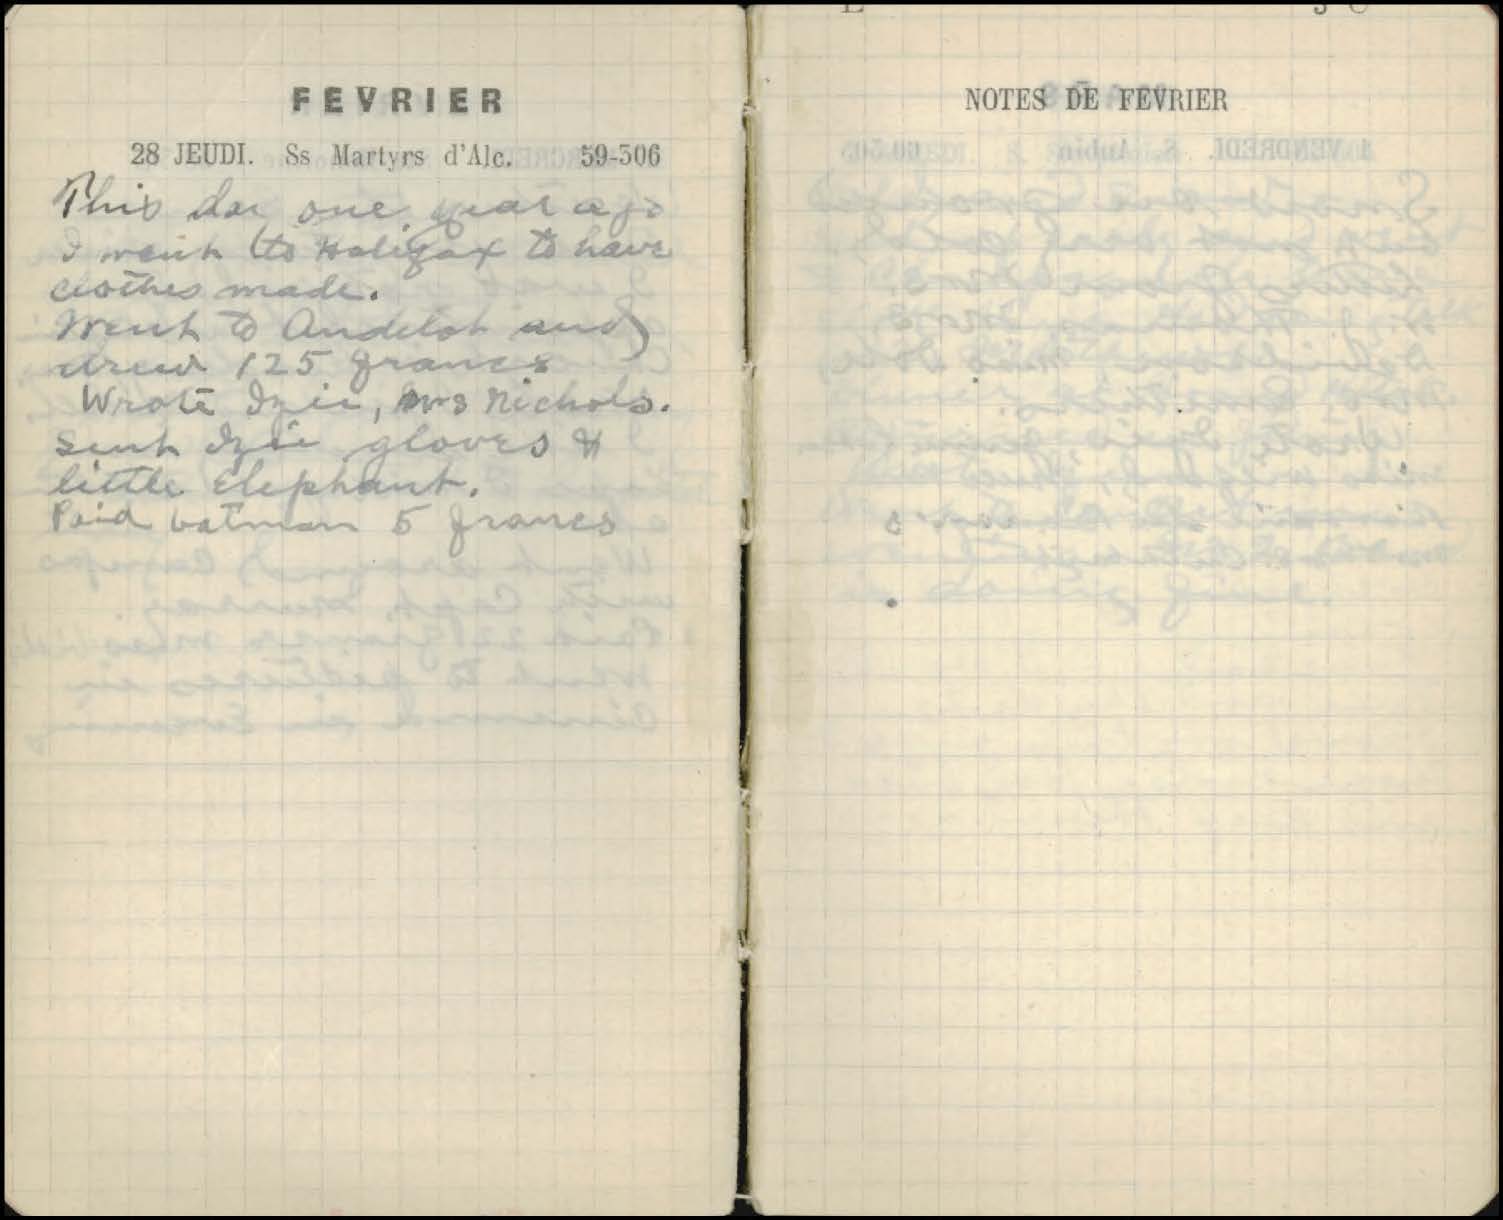 FEVRIER
28 JEUDI. Ss Martyrs d'Alc. 59-306
This day one year ago
I went to Halifax to have
clothes made.
Went to Andelot and
drew 125 francs
Wrote Izie, Mrs Nichols.
Sent Izie gloves &
little Elephant.
Paid batman 5 francs
NOTES DE FEVRIER